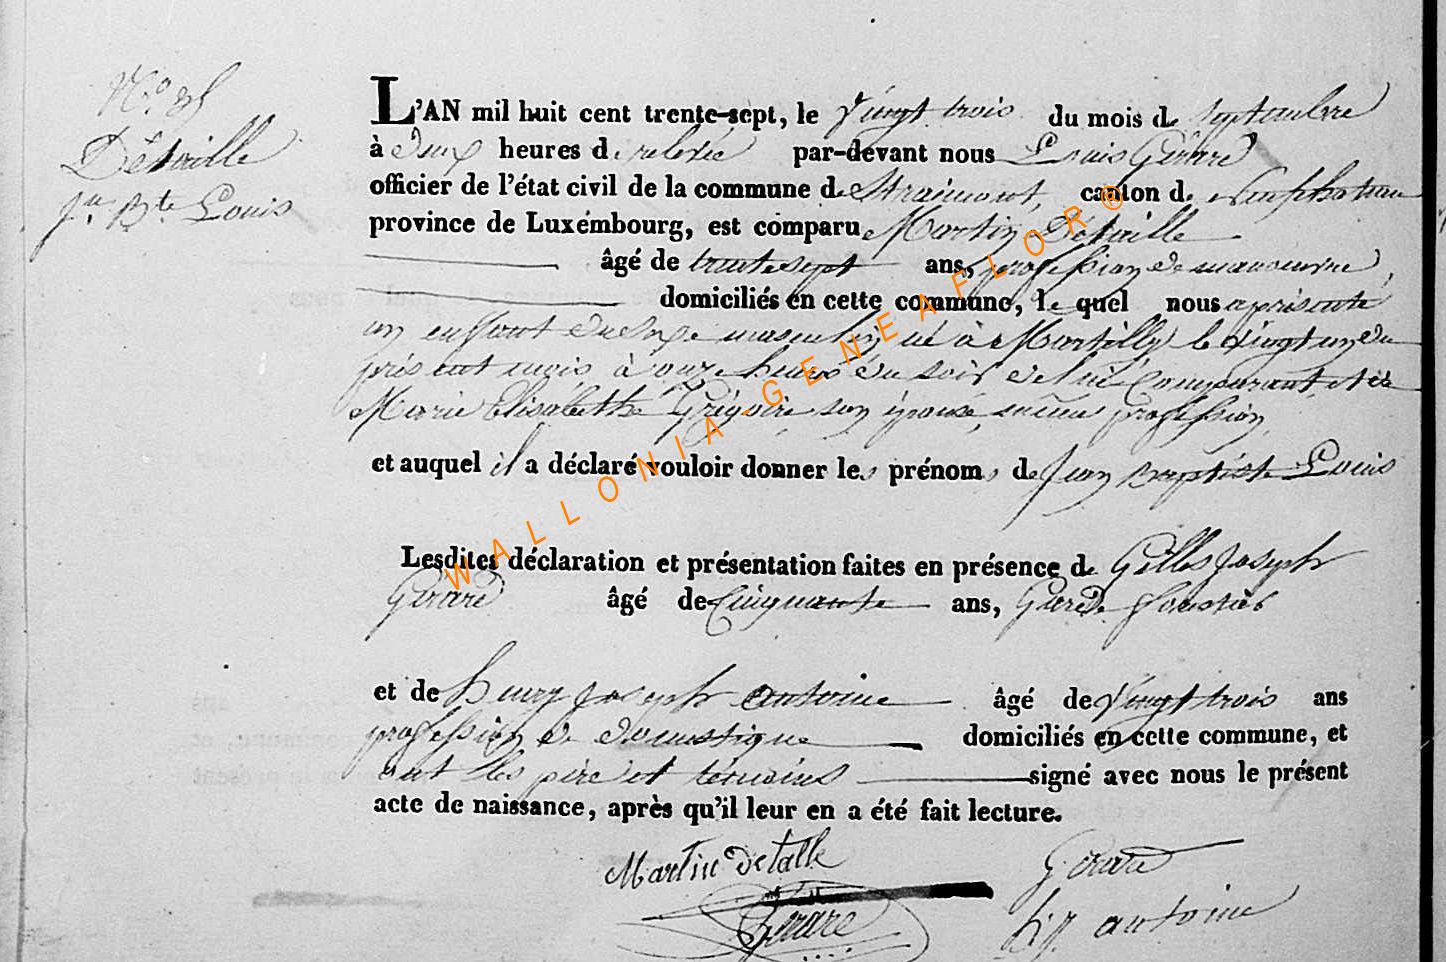 N.o 35
Détaille
Jn. Bte Louis
L'AN mil huit cent trente-sept, le vingt trois du mois de septembre
à deux heures de relevée par-devant nous Louis Gérard
officier de l'état civil de la commune de Straimont, canton de Neufchateau
province de Luxémbourg, est comparu Martin Détaille
âgé de trente sept ans, profession de manoeuvre,
domiciliés en cette commune, le quel nous a présenté
un enfant du sexe masculin, né à Martilly le vingt un du
présent mois à onze heures du soir de lui comparant et de
Marie Elisabethe Grégoire son épouse, même profession
et auquel il a déclaré vouloir donner les prénoms de Jean Baptiste Louis
Lesdites déclaration et présentation faites en présence de Gilles Joseph
Gérard âgé de Cinquante ans, Garde forestier
et de henry Joseph antoine âgé de vingt trois ans
profession de domestique domiciliés en cette commune, et
ont les père et témoins signé avec nous le présent
acte de naissance, après qu'il leur en a été fait lecture.
Martin detalle Gérard
Gérard h. j. antoine
WALLONIA-GENEAFLOR®